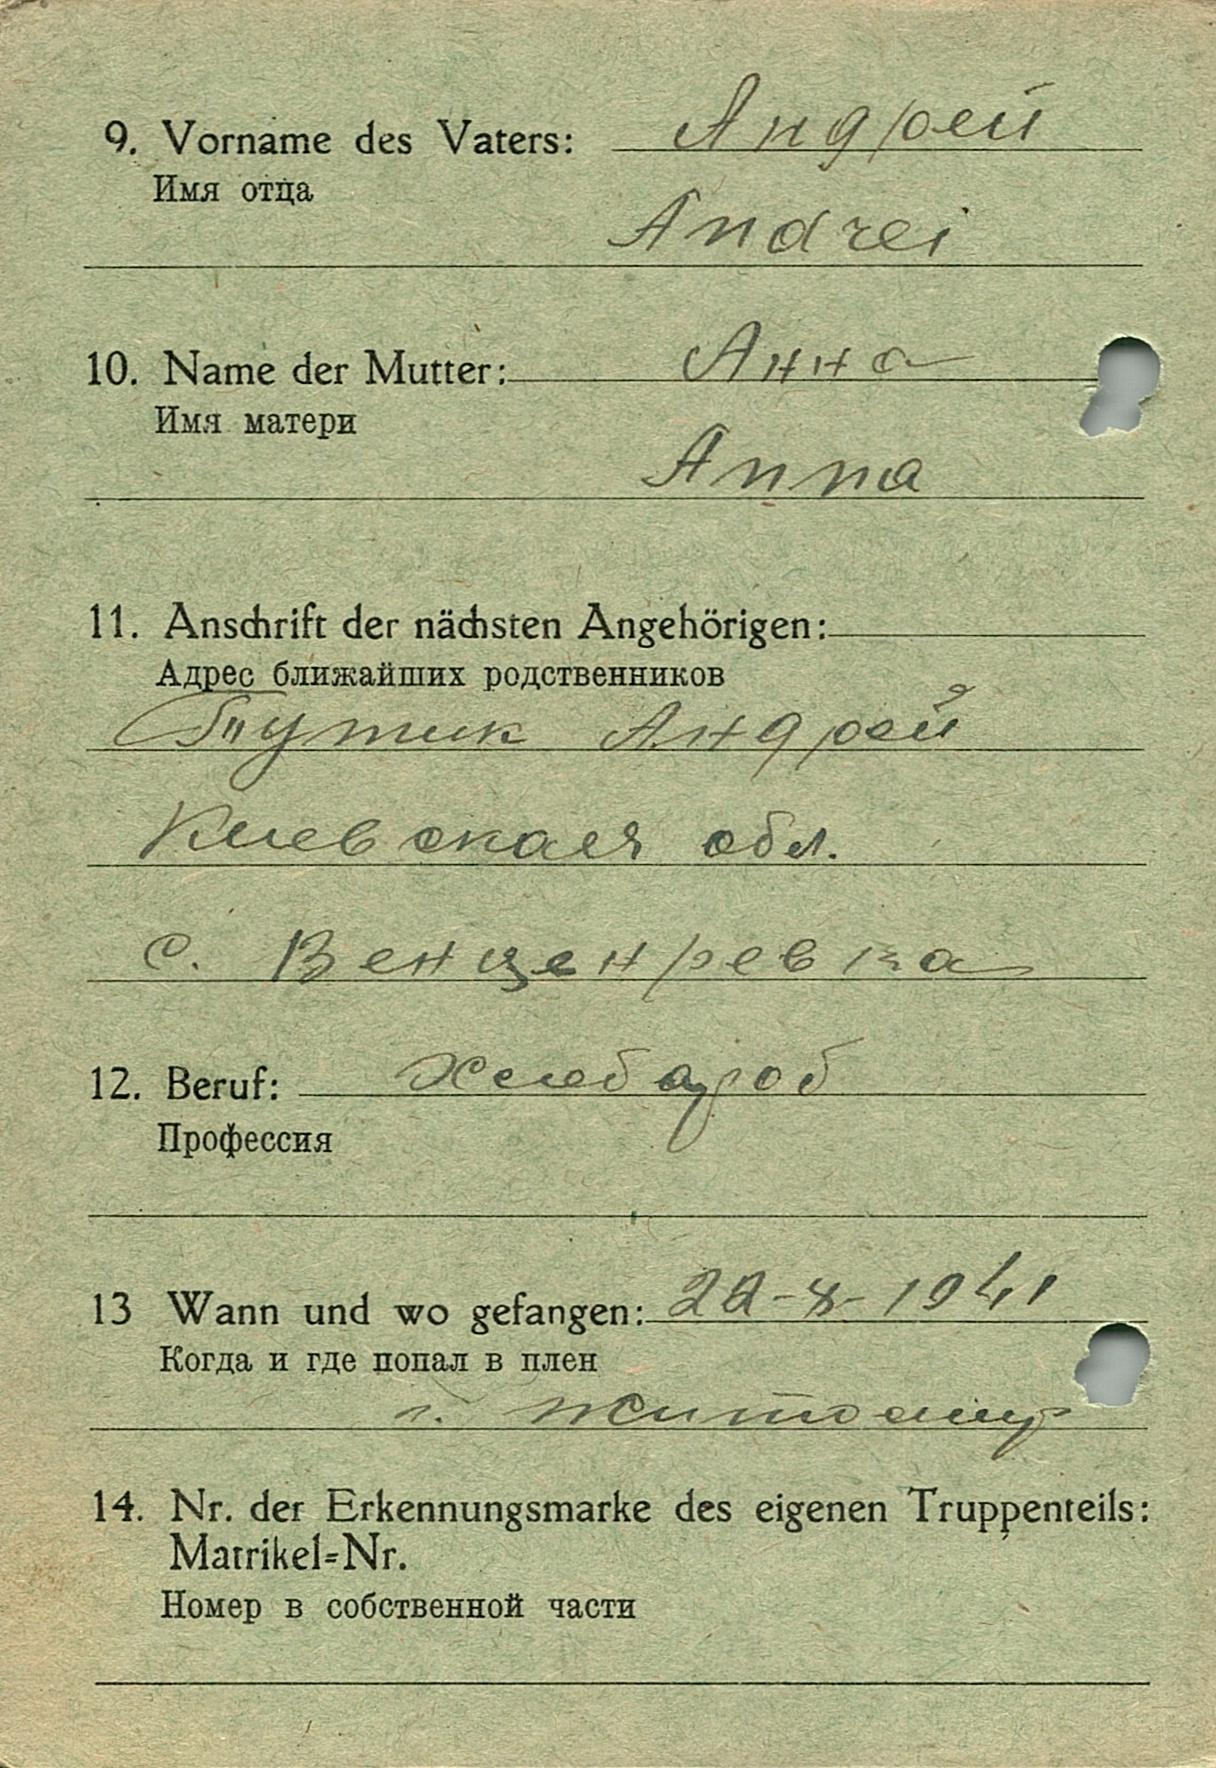 9. Vorname des Vaters: Андрей
Имя отца
Andrei
10. Name der Mutter: Анна
Имя матери
Anna
11. Anschrift der nächsten Angehörigen:
Адрес ближайших родственников
Андрей
Киевская обл.
с.
12. Beruf: Хлебароб
Профессия
13 Wann und wo gefangen: 22-8-1941
Когда и где попал в плен
г. Житомир
14. Nr. der Erkennungsmarke des eigenen Truppenteils:
Matrikel=Nr.
Номер в собственной части